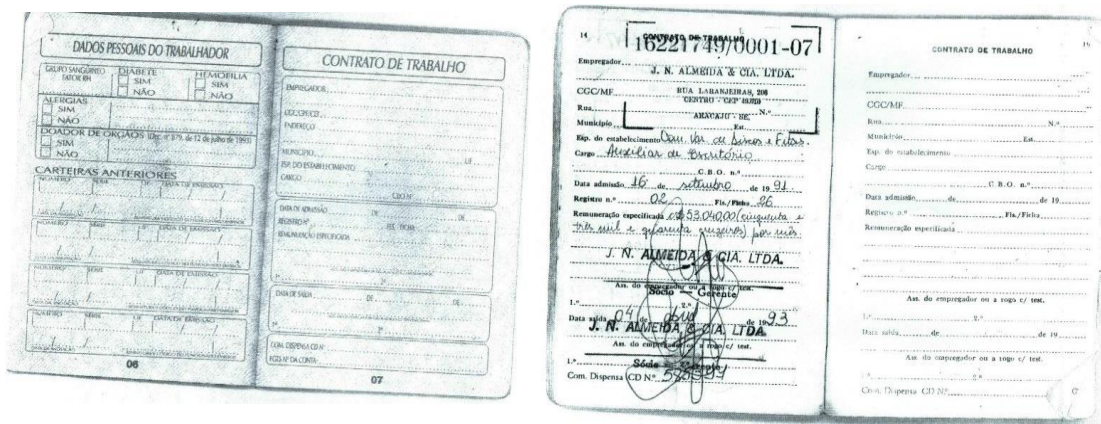 DADOS PESSOAIS DO TRABALHADOR
GRUPO SANGUÍNEO
FATOR RH
DIABETE
SIM
NÃO
HEMOFILIA
SIM
NÃO
ALERGIAS
SIM
NÃO
DOADOR DE ORGÃOS (Dec. nº 879, de 12 de julho de 1993)
SIM
NÃO
CARTEIRAS ANTERIORES
NÚMERO SÉRIE UF DATA DE EMISSÃO
NÚMERO SÉRIE UF DATA DE EMISSÃO
NÚMERO SÉRIE UF DATA DE EMISSÃO
NÚMERO SÉRIE UF DATA DE EMISSÃO
06
CONTRATO DE TRABALHO
EMPREGADOR
CGC/CPF/CEI
ENDEREÇO
MUNICÍPIO UF
ESP. DO ESTABELECIMENTO
CARGO
CBO Nº
DATA DE ADMISSÃO DE DE
REGISTRO Nº FLS. / FICHA
REMUNERAÇÃO ESPECIFICADA
1º 2º
DATA DE SAÍDA DE DE
1º 2º
COM. DISPENSA CD Nº
FGTS Nº DA CONTA
07
14
CONTRATO DE TRABALHO
16221749/0001-07
Empregador
J. N. ALMEIDA & CIA. LTDA.
CGC/MF
RUA LARANJEIRAS, 206
CENTRO - CEP
Rua N.º
ARACAJU - SE.
Município Est.
Esp. do estabelecimento de Discos e Fitas.
Cargo Auxiliar de Escritório
C. B. O. n.º
Data admissão 16 de setembro de 19 91
Registro n.º 02 Fls./Ficha 26
Remuneração especificada Cr$ 53.040,00 (cinquenta e
três mil e quarenta cruzeiros) por mês.
J. N. ALMEIDA & CIA. LTDA.
Ass. do empregador ou a rogo c/ test.
Sócio — Gerente
1.º 2.º
Data saída 04 de abril de 19 93
J. N. ALMEIDA & CIA. LTDA.
Ass. do empregador ou a rogo c/ test.
1.º Sócio — Gerente
Com. Dispensa CD N.º
CONTRATO DE TRABALHO
Empregador
CGC/MF
Rua N.º
Município Est.
Esp. do estabelecimento
Cargo
C. B. O. n.º
Data admissão de de 19
Registro n.º Fls./Ficha
Remuneração especificada
Ass. do empregador ou a rogo c/ test.
1.º 2.º
Data saída de de 19
Ass. do empregador ou a rogo c/ test.
1.º 2.º
Com. Dispensa CD Nº